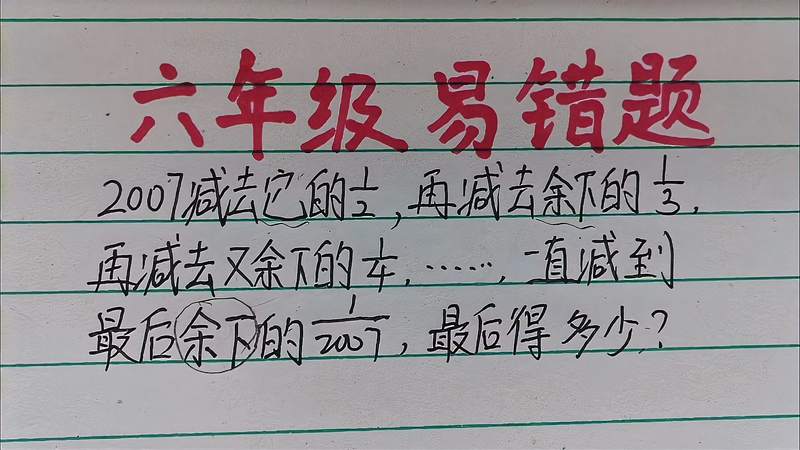 六年级 易错题
2007减去它的1/2,再减去余下的1/3,
再减去又余下的1/4,……,一直减到
最后余下的1/2007,最后得多少?